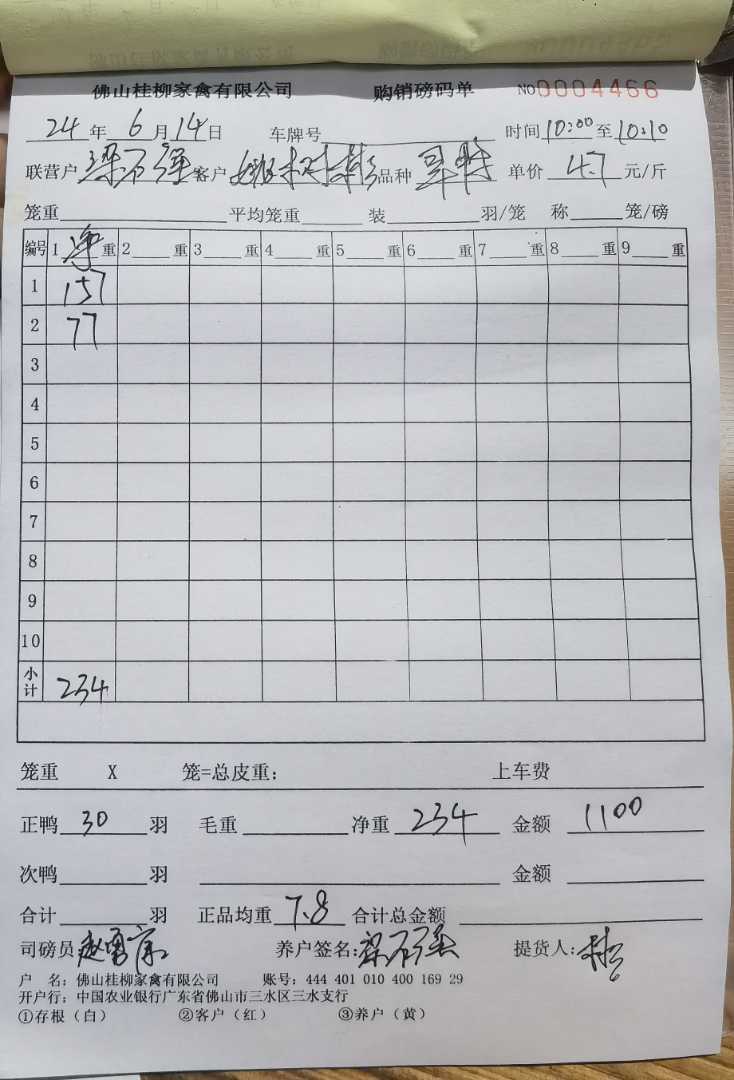 佛山桂柳家禽有限公司 购销磅码单 NO0004466
24年6月14日 车牌号 时间10:00至10:10
联营户梁石强客户 品种 单价4.7元/斤
笼重 平均笼重 装 羽/笼 称 笼/磅
编号 1净重 2 重 3 重 4 重 5 重 6 重 7 重 8 重 9 重
1 157
2 77
3
4
5
6
7
8
9
10
小计 234
笼重 X 笼=总皮重: 上车费
正鸭30羽 毛重 净重234 金额1100
次鸭 羽 金额
合计 羽 正品均重7.8 合计总金额
司磅员 养户签名:梁石强 提货人:
户 名: 佛山桂柳家禽有限公司 账号: 444 401 010 400 169 29
开户行: 中国农业银行广东省佛山市三水区三水支行
①存根（白） ②客户（红） ③养户（黄）